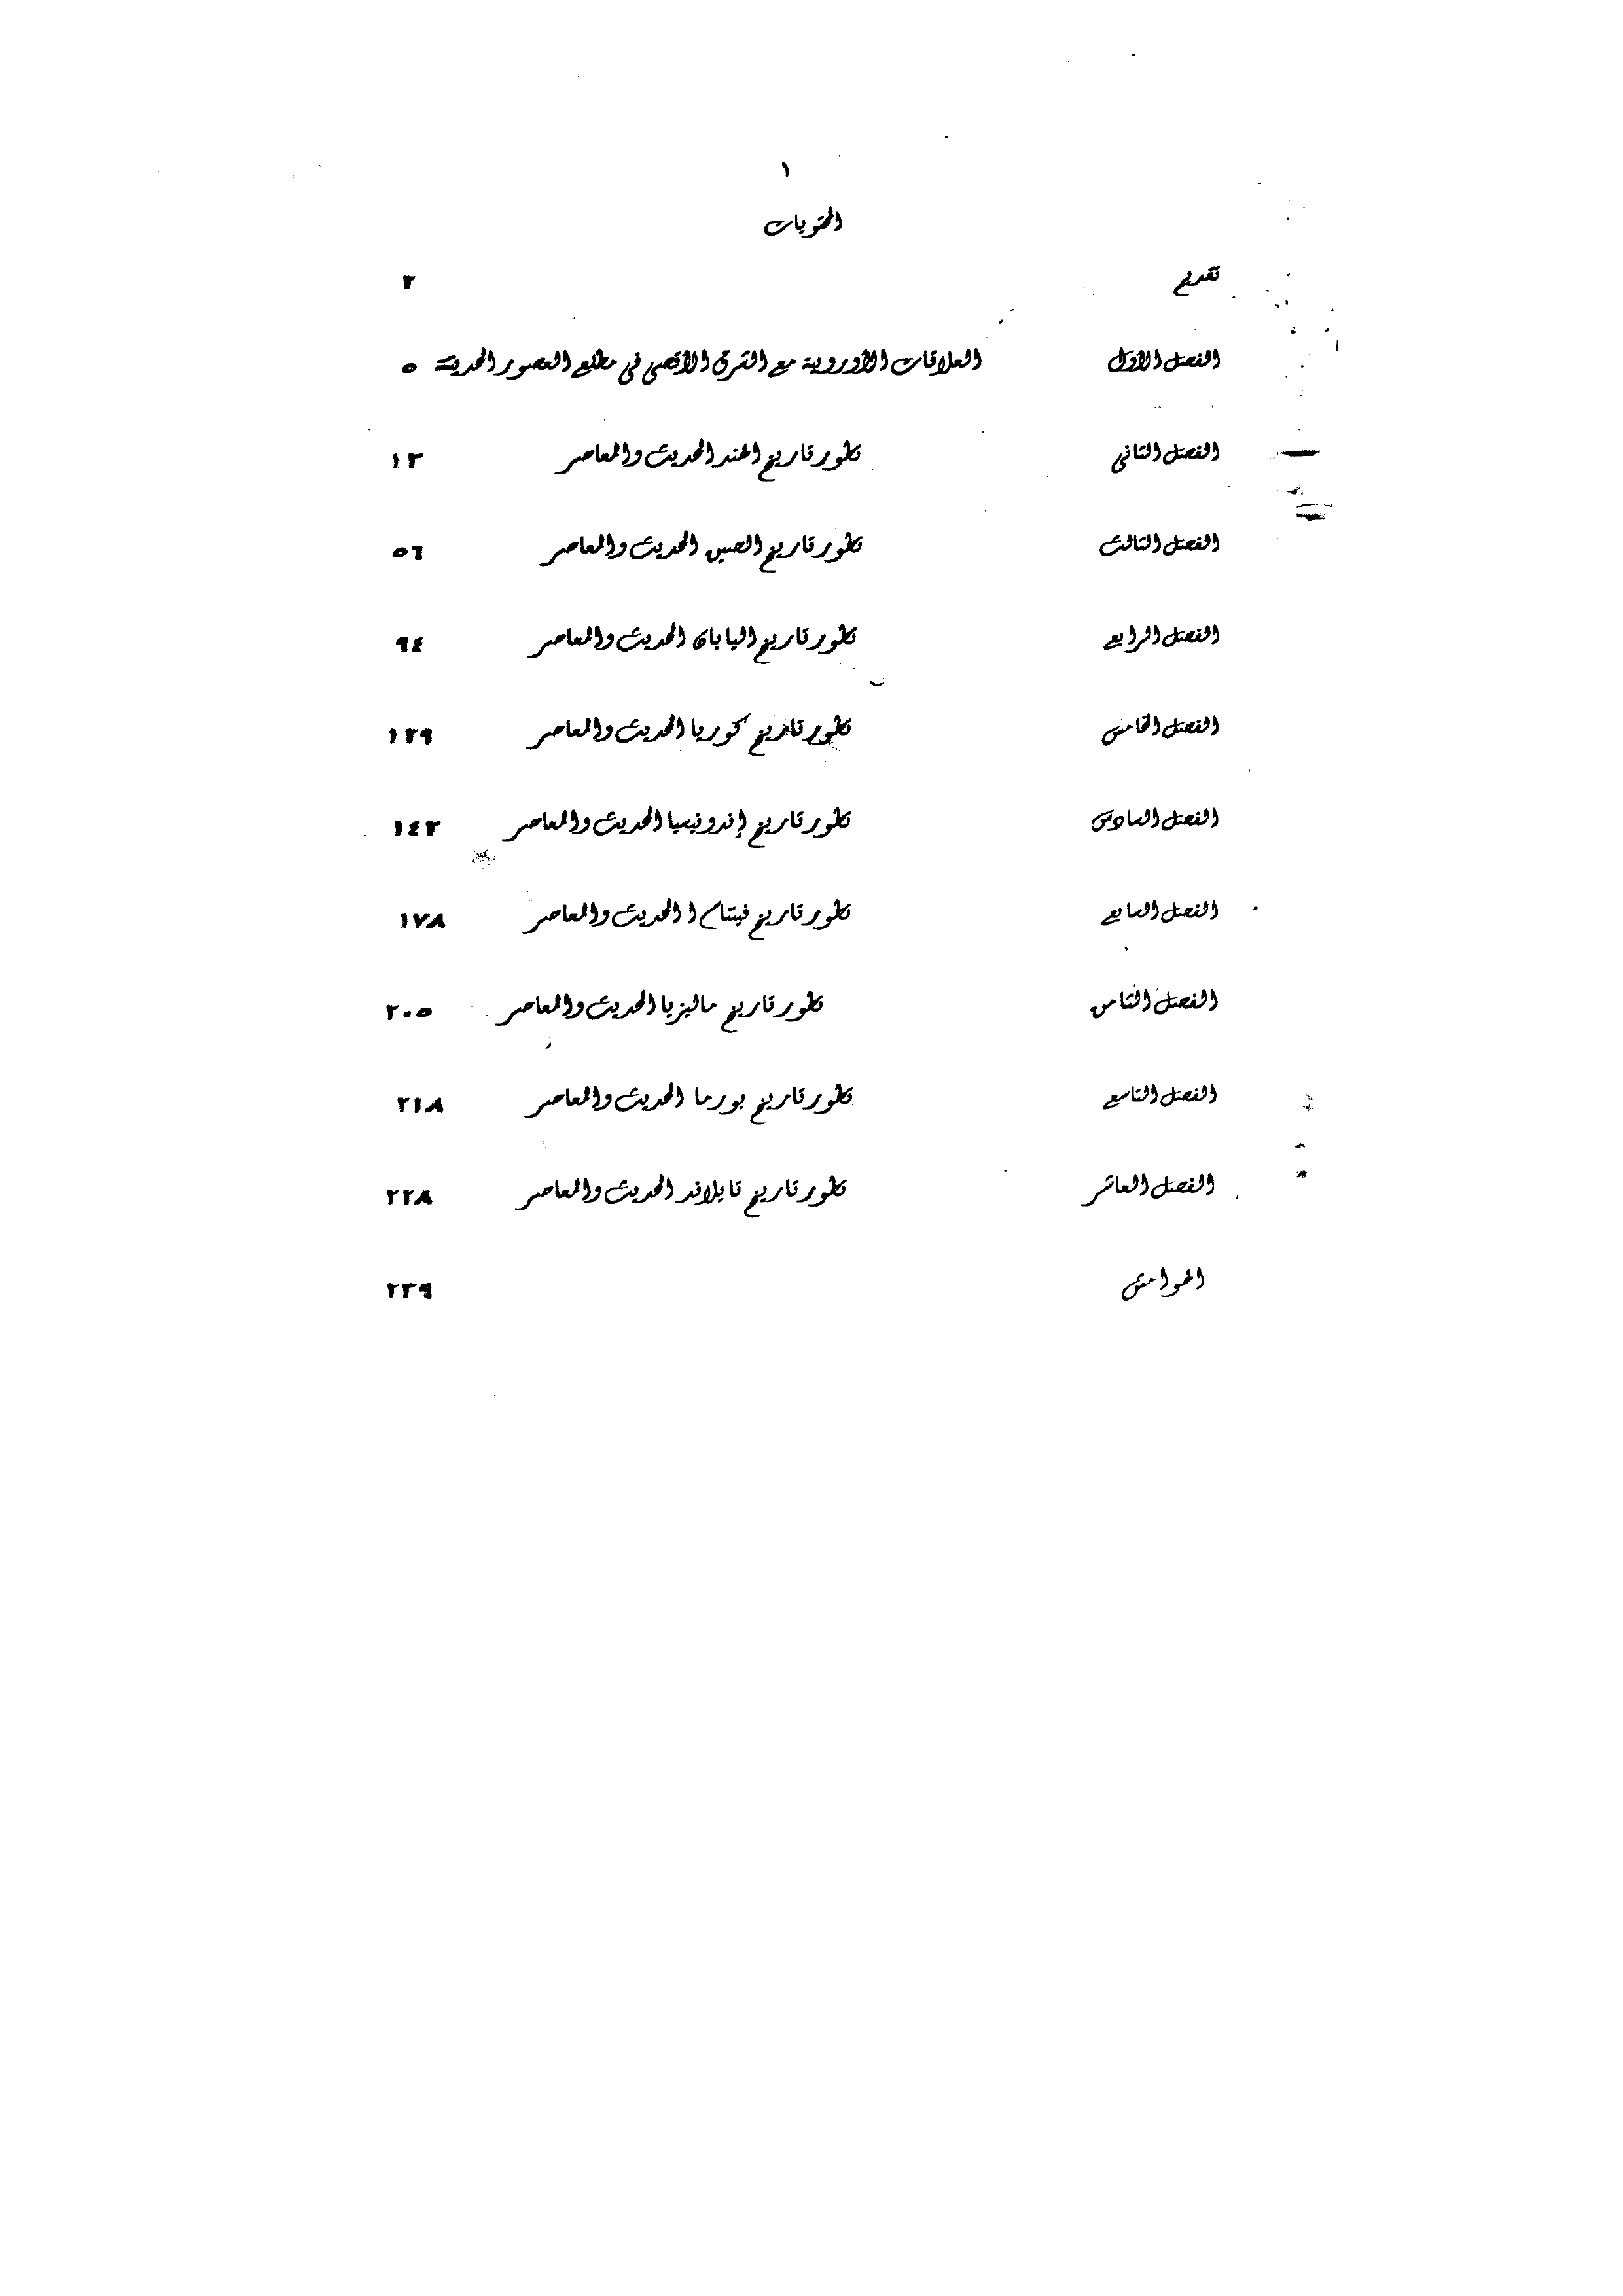 ١
المحتويات
تقديم ٣
الفصل الأول العلاقات الأوروبية مع الشرق الأقصى فى مطلع العصور الحديثة ٥
الفصل الثانى تطور تاريخ الهند الحديث والمعاصر ١٣
الفصل الثالث تطور تاريخ الصين الحديث والمعاصر ٥٦
الفصل الرابع تطور تاريخ اليابان الحديث والمعاصر ٩٤
الفصل الخامس تطور تاريخ كوريا الحديث والمعاصر ١٢٩
الفصل السادس تطور تاريخ إندونيسيا الحديث والمعاصر ١٤٣
الفصل السابع تطور تاريخ فيتنام ا الحديث والمعاصر ١٧٨
الفصل الثامن تطور تاريخ ماليزيا الحديث والمعاصر ٢٠٥
الفصل التاسع تطور تاريخ بورما الحديث والمعاصر ٢١٨
الفصل العاشر تطور تاريخ تايلاند الحديث والمعاصر ٢٢٨
الهوامش ٢٣٩